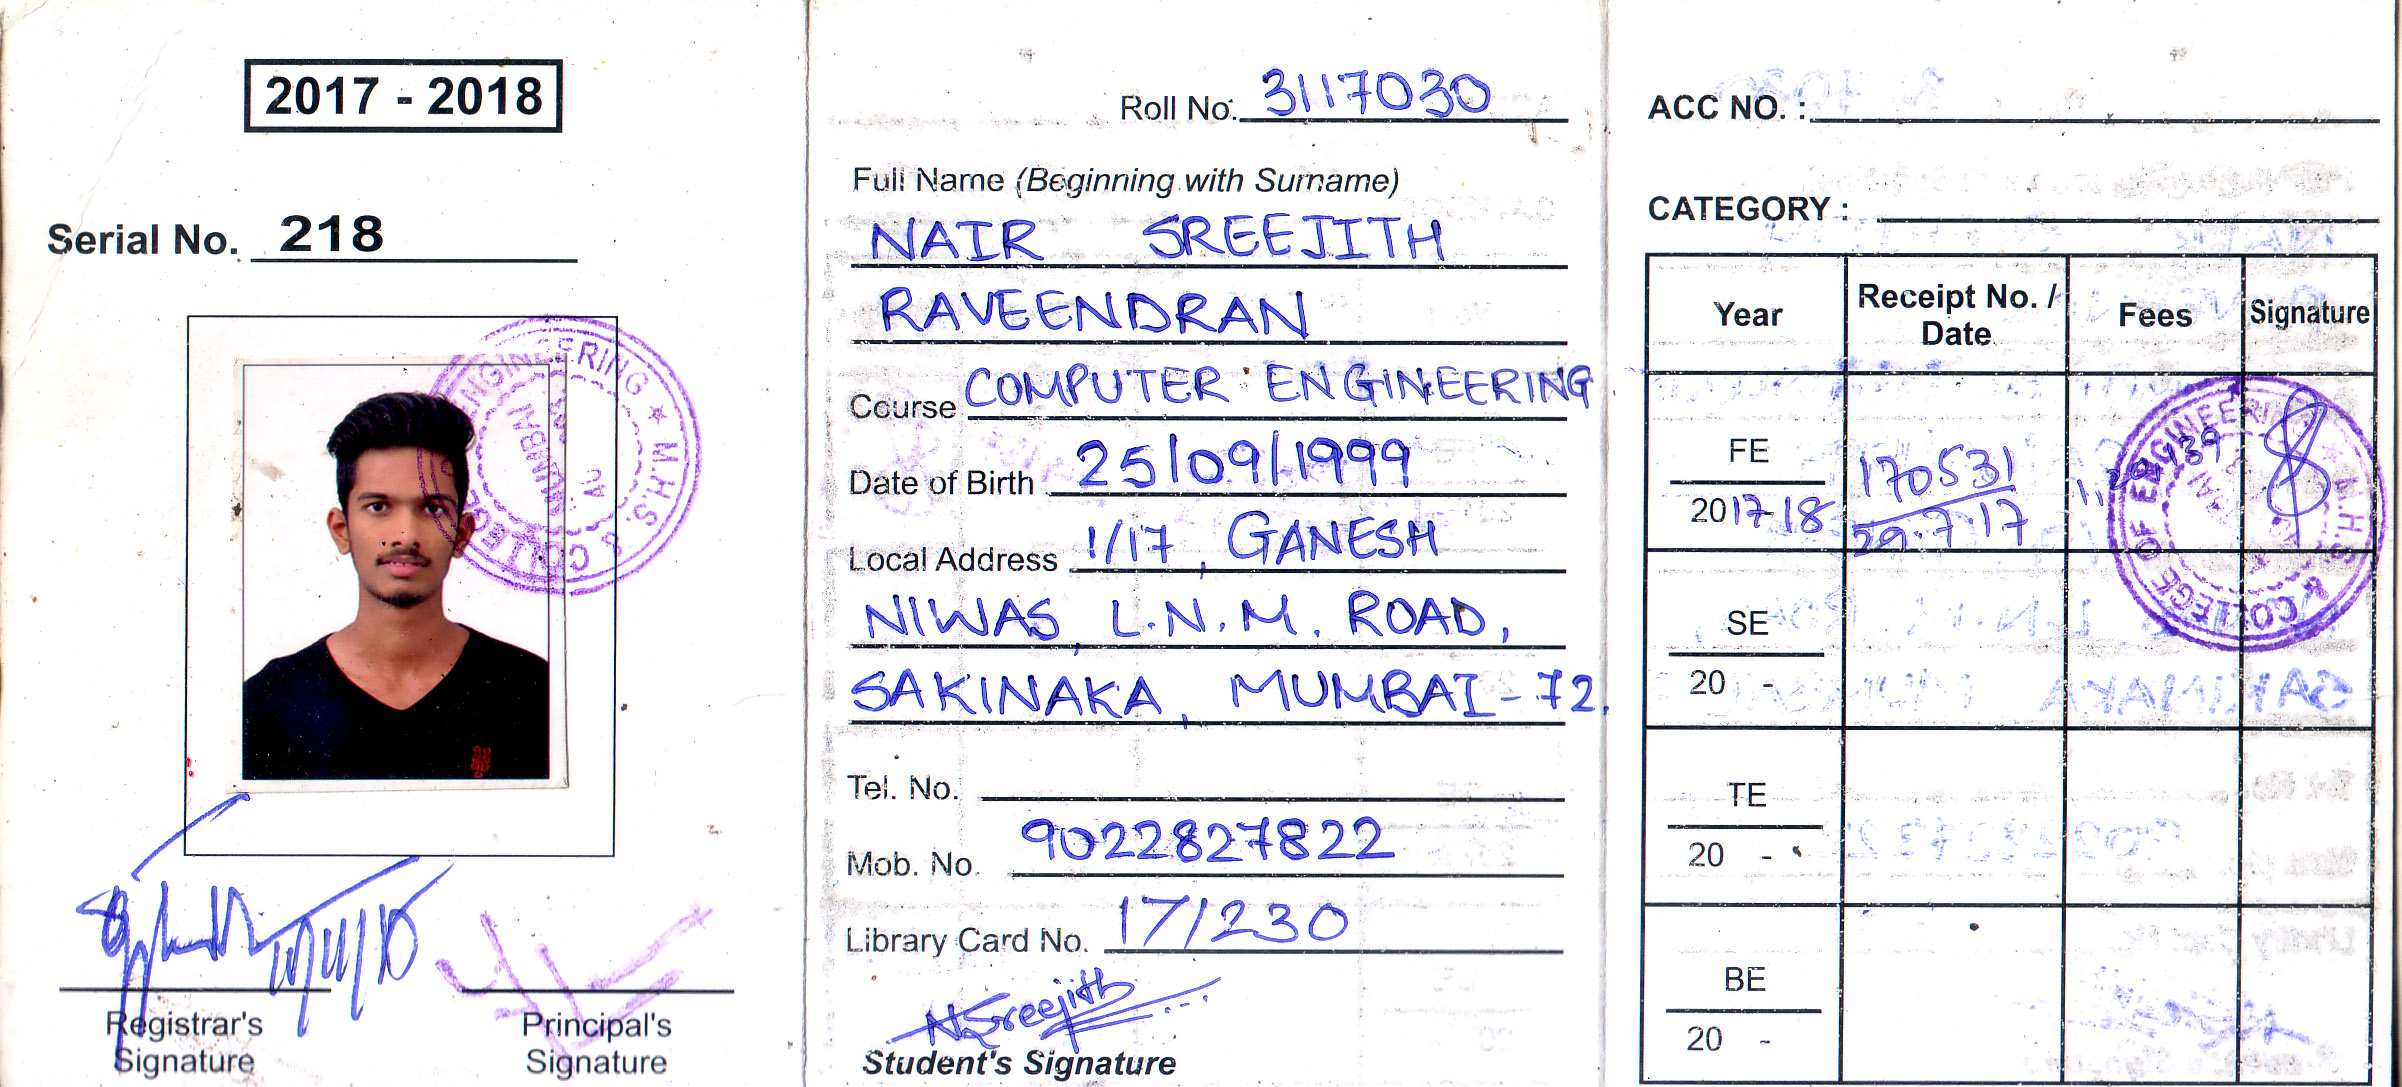 2017 - 2018
Serial No. 218
ENGINEERING ★ M.H.S.S. COLLEGE
MUMBAI
Registrar's Signature
Principal's Signature
Roll No. 3117030
Full Name (Beginning with Surname)
NAIR SREEJITH
RAVEENDRAN
Course COMPUTER ENGINEERING
Date of Birth 25/09/1999
Local Address 1/17, GANESH
NIWAS, L.N.M. ROAD,
SAKINAKA, MUMBAI-72.
Tel. No.
Mob. No. 9022827822
Library Card No. 17/230
NSreejith
Student's Signature
ACC NO. :
CATEGORY :
Year Receipt No. / Date Fees Signature
FE
2017-18 170531
29.7.17
COLLEGE OF ENGINEERING ★ M.H.S.
SE
20 -
TE
20 -
BE
20 -